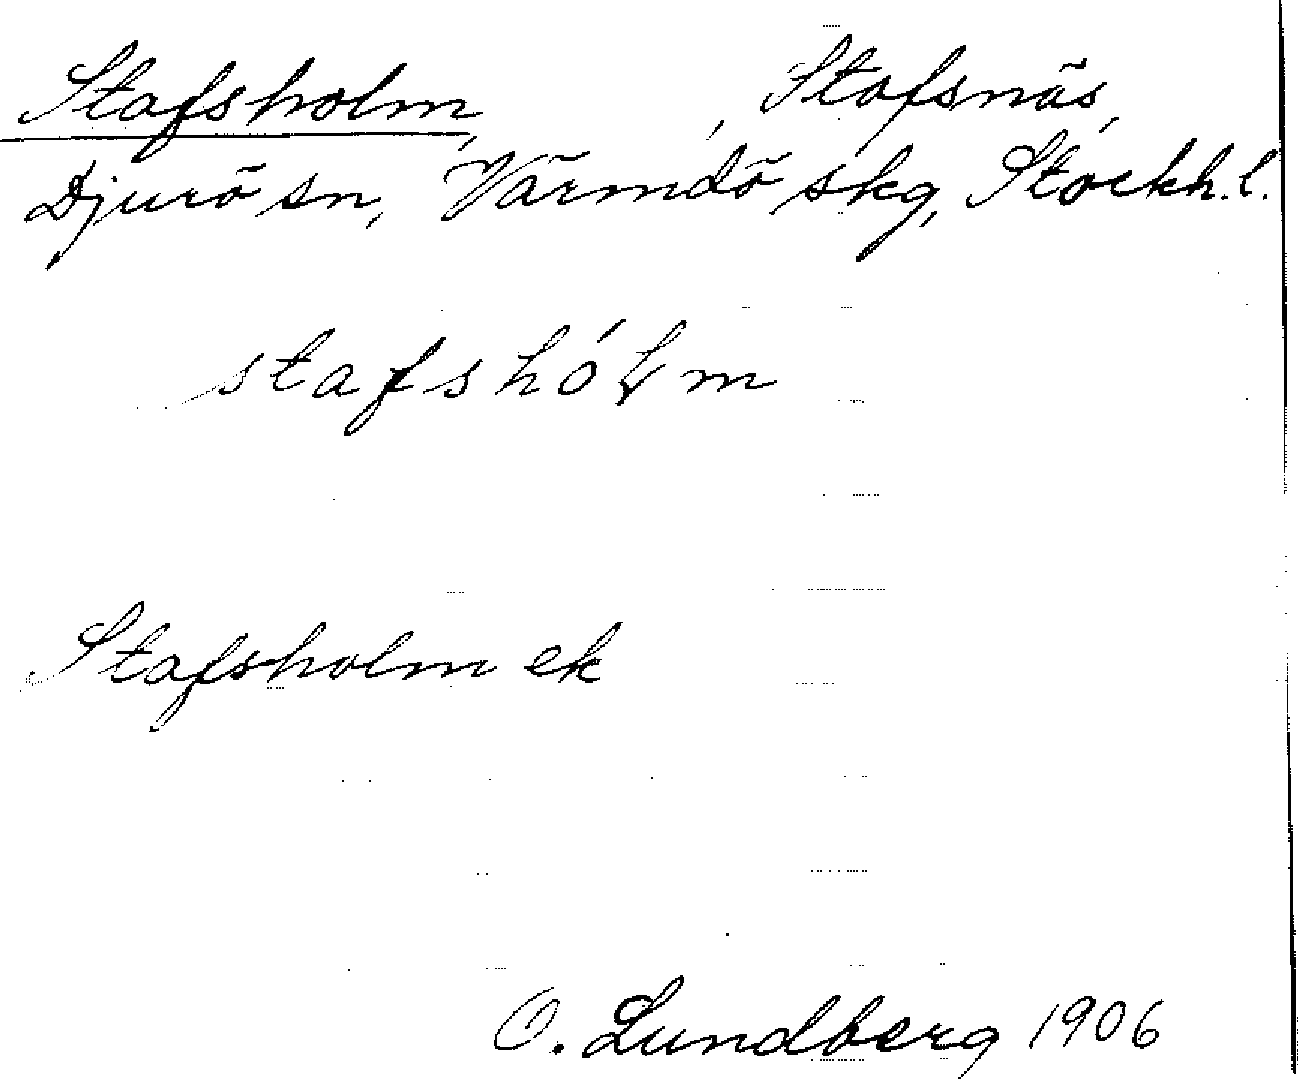 Stafsholm, , Stafsnäs,
Djurö sn, Värmdö skg, Stockh. l.
stafshóḷm
Stafsholm ek
O. Lundberg 1906